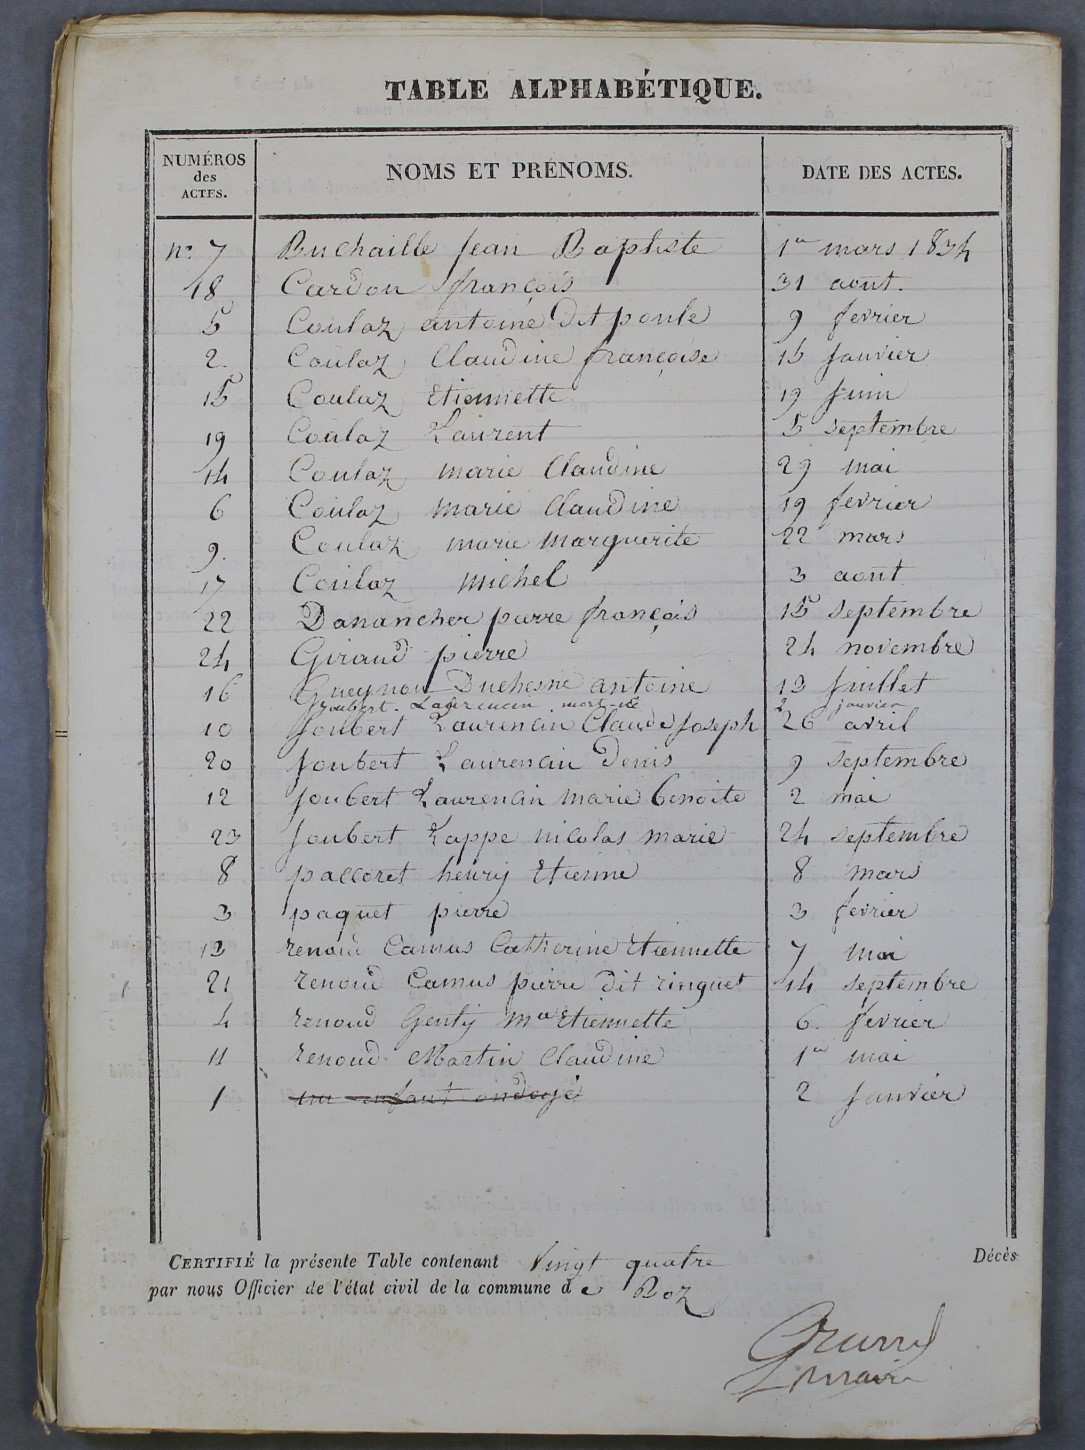 TABLE ALPHABÉTIQUE.
NUMÉROS des ACTES. NOMS ET PRÉNOMS. DATE DES ACTES.
No 7 Buchaille Jean Baptiste 1er mars 1834
18 Cardon françois 31 aout.
5 Coulaz antoine Dit poule 9 fevrier
2. Coulaz Claudine françoise 15 Janvier
15 Coulaz Etiennette 19 Juin
19 Coulaz Laurent 5 septembre
14 Coulaz marie Claudine 29 mai
6 Coulaz marie Claudine 19 fevrier
9. Coulaz marie marguerite 22 mars
17 Coulaz michel 3 aout
22 Danancher pierre françois 15 septembre
24 Giraud pierre 24 novembre
16 Gueynon Duchesne antoine 13 Juillet
Joubert Laurencin mort-né 2 janvier
10 Joubert Laurencin Claude Joseph 26 avril
20 Joubert Laurencin Denis 9 septembre
12 Joubert Laurencin marie benoite 2 mai
23 Joubert Lappe nicolas marie 24 septembre
8 palloret henry Etienne 8 mars
3 paquet pierre 3 fevrier
13 renoud Camus Catherine Etiennette 7 mai
21 renoud Camus pierre dit ringuet 14 septembre
4 renoud Genty Mie Etiennette 6. fevrier
11 renoud Martin Claudine 1er mai
1 un enfant ondoyé 2 Janvier
CERTIFIÉ la présente Table contenant Vingt quatre Décès
par nous Officier de l'état civil de la commune de Boz
maire